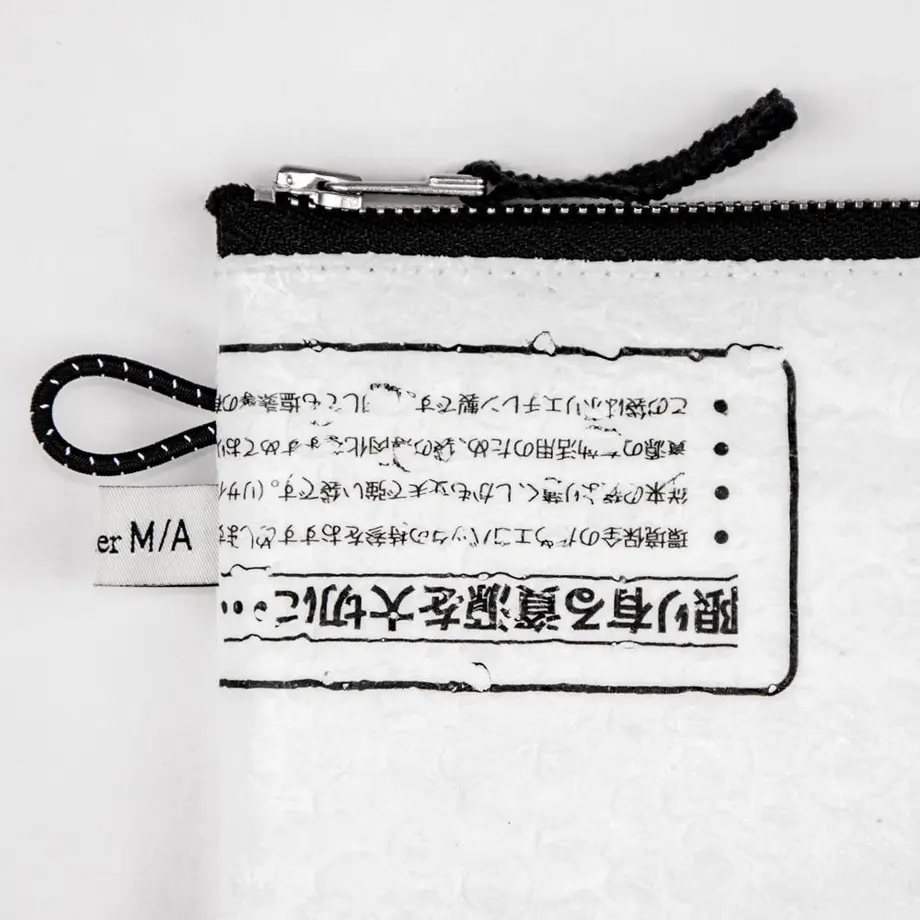 er M/A
限り有る資源を大切に・・・
● 環境保全のためエコバックの持参をおすすめしま
● 従来の袋より薄く、しかも丈夫で強い袋です。(リサイ
● 資源の有効活用のため、袋の薄肉化をすすめており
● この袋はポリエチレン製です。しても塩素等の